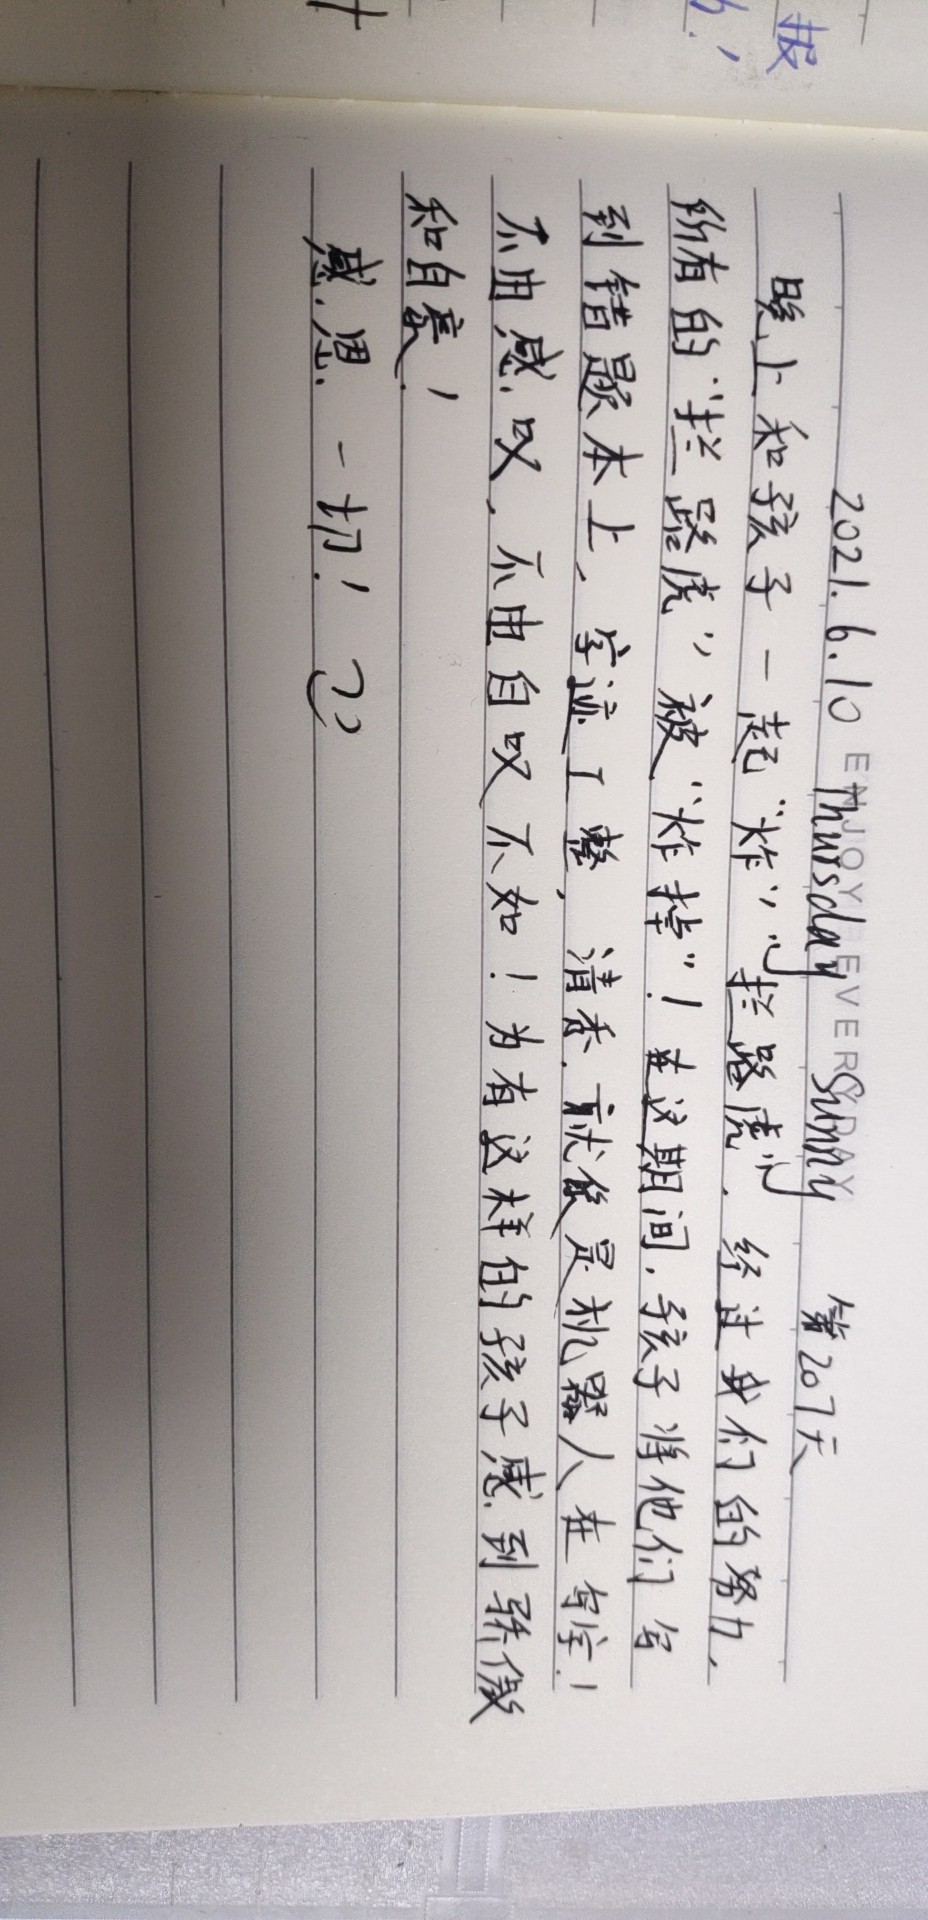 ENJOY EVERYDAY
2021.6.10 Thursday Sunny 第207天
晚上和孩子一起“炸”“拦路虎”.经过我们的努力,
所有的“拦路虎”被“炸掉”!在这期间,孩子将他们写
到错题本上,字迹工整,清秀.就像是机器人在写字!
不由感叹,不由自叹不如!为有这样的孩子感到骄傲
和自豪!
感恩一切!
报